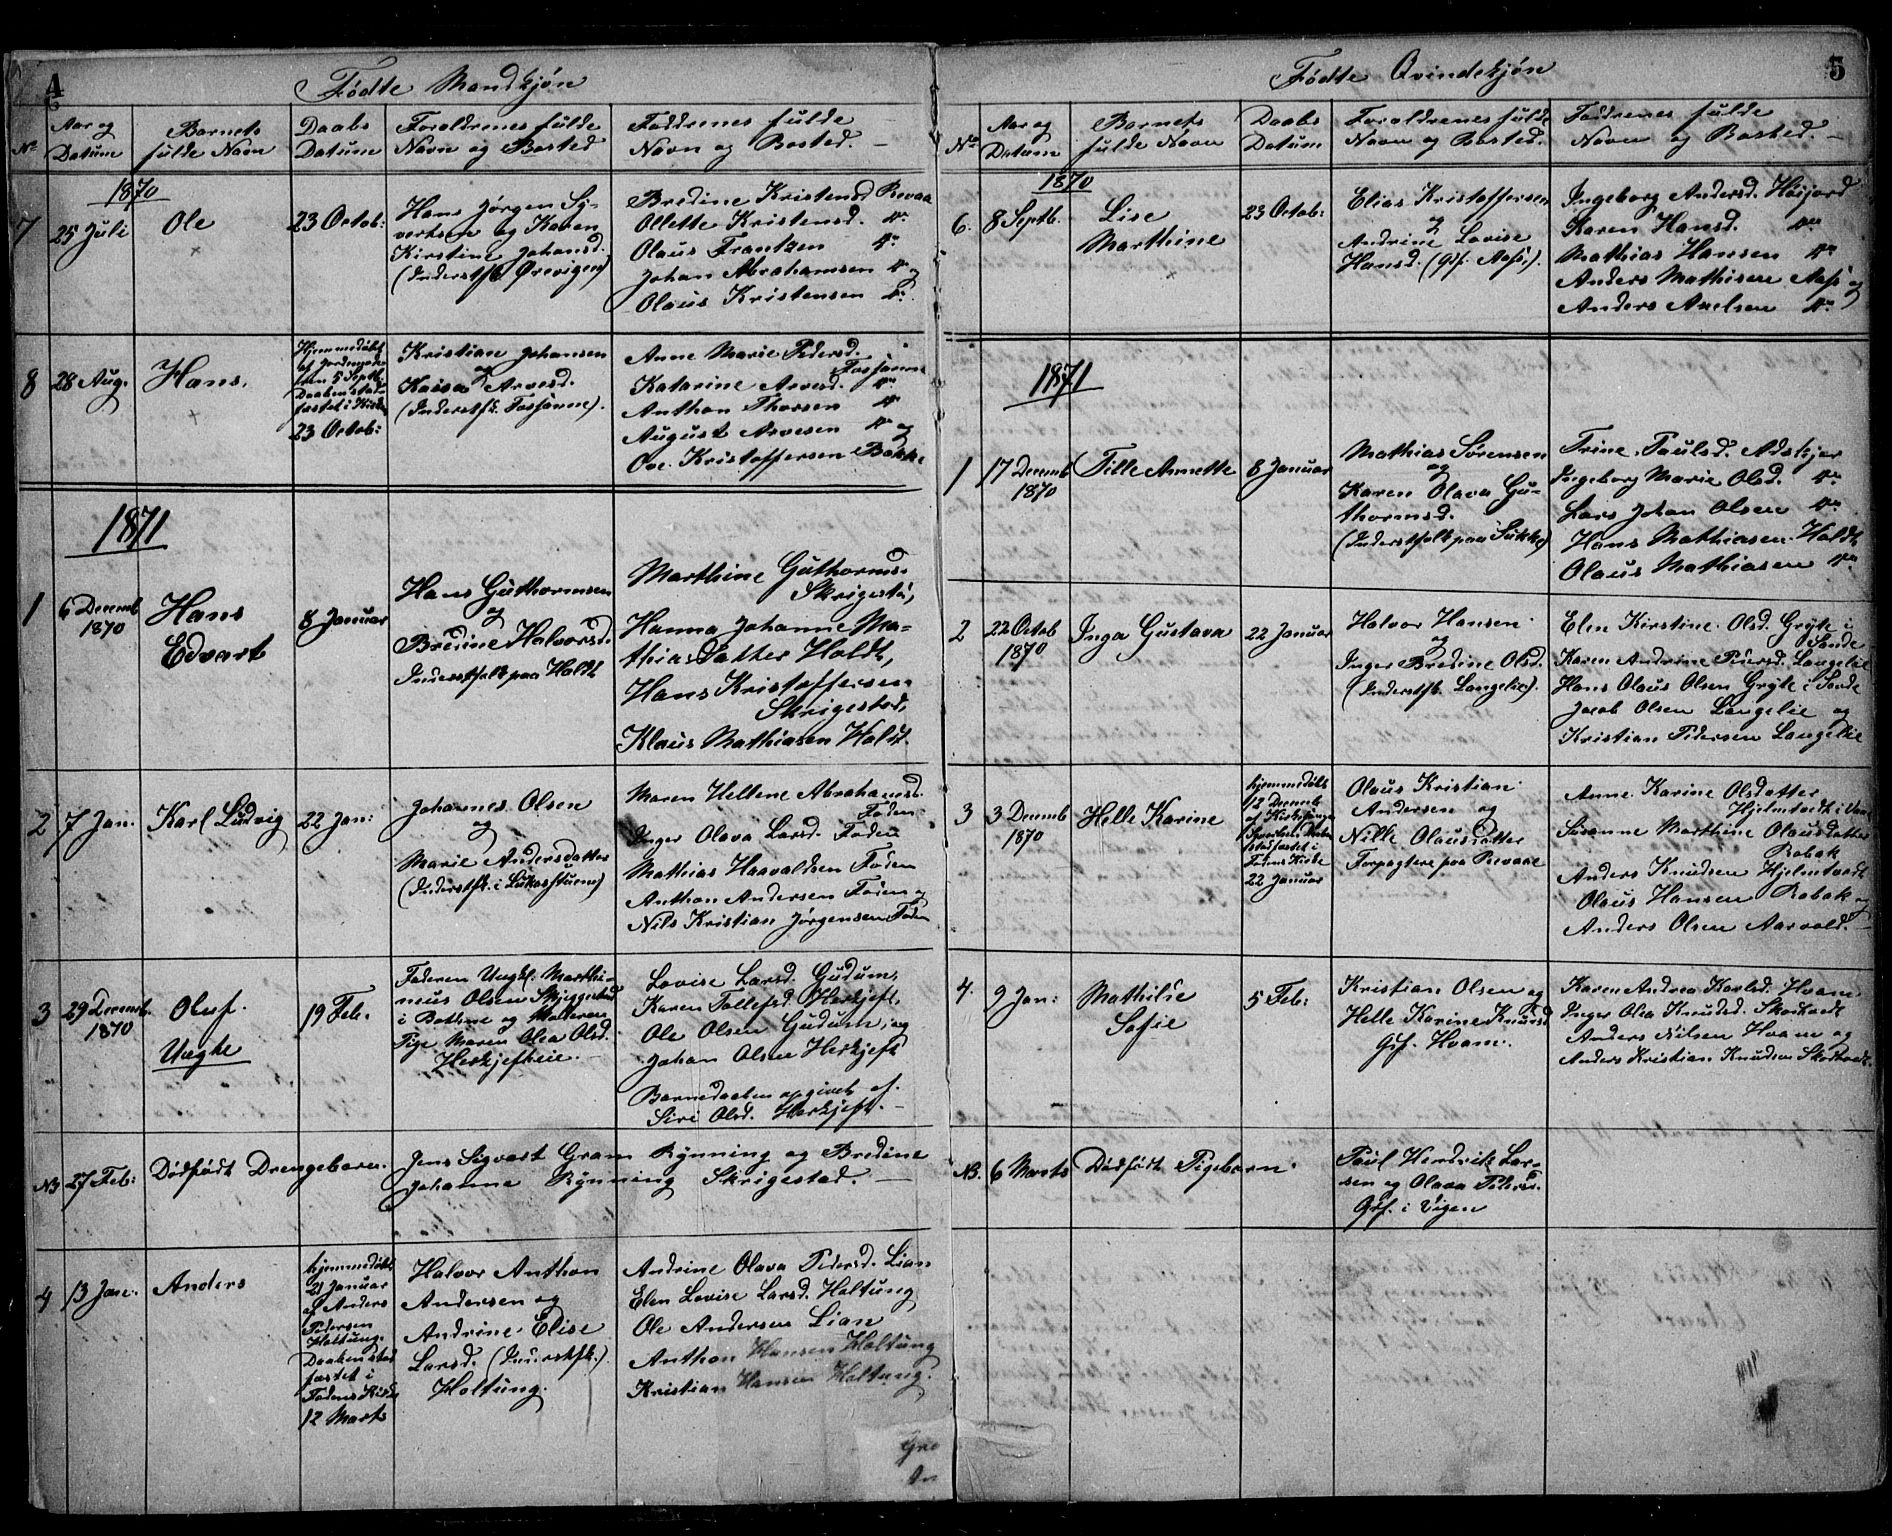 4
Fødte Mandkjøn
No
Aar og
Datum
Barnets
fulde Navn
Daabs
Datum
Forældrenes fulde
Navn og Bosted
Faddrenes fulde
Navn og Bosted. —
1870
7
25 Juli
Ole
23 Octob:
Hans Jørgen Sy-
vertsen og Karen
Kirstine Johansd.
(Inderstfk. Ørevigen)
Bredine Kristensd. Revaa
Ollette Kristensd. do
Olaus Frantzen do
Johan Abrahamsen do og
Olaus Kristensen do
8
28 Aug.
Hans.
Hjemmedøbt
af Jordemoder
den 5 Septb.
Daaben stad-
fæstet i Kirken
23 Octob:
Kristian Johansen
og
Arvesd.
(Inderstfk. Fossanne).
Anne Marie Pedersd.
Fossanne
Katarine Arvesd. do
Anthon Thorsen do
August Arvesen do og
Ove Kristoffersen Bakke
1871
1
6 Decemb
1870
Hans
Edvart
8 Januar
Hans Guthormsen
og
Bredine Halvorsd.
Inderstfolk paa Holdt
Marthine Guthormsd.
Skrigestd,
Hanna Johanne Ma-
thiasdatter Holdt,
Hans Kristoffersen
Skrigestad,
Klaus Mathiasen Holdt.
2
7 Jan.
Karl Ludvig
22 Jan:
Johannes Olsen
og
Marie Andersdatter
(Inderstfk. i Lukasstuen)
Maren Hellene Abrahamsd.
Foden
Inger Olava Larsd. Foden
Mathias Haavaldsen Foden
Anthon Andersen Foden og
Nils Kristian Jørgensen Foden
3
29 Decemb.
1870
Oluf.
Uægte
19 Feb.
Faderen Ungkl. Marthi-
nius Olsen Skjeggestad
i Bothne og Moderen
Pige Maren Olea Olsd.
Herkjefteie.
Lovise Larsd. Gudum,
Karen Tollefsd. Herkjeft,
Ole Olsen Gudum, og
Johan Olsen Herkjeft
Barnedaaben opgivet af
Siri Olsd. Herkjeft. —
No
27 Feb:
Dødfødt Drengebarn.
Jens Sigvart Gram Rynning og Bredine
Johanne Rynning Skrigestad. —
4
13 Jan.
Anders
hjemmedøbt
21 Januar
af Anders
Pedersen
Holtung.
Daaben stad
fæstet i
Fodens Kirke
12 Marts
Halvor Anthon
Andersen og
Andrine Elise
Larsd. (Inderstfk.)
Holtung.
Andrine Olava Pedersd. Lian
Elen Lovise Larsd. Holtung
Ole Andersen Lian
Anthon Hansen Holtung
Kristian Hansen Holtung.
5
Fødte Qvindekjøn
No
Aar og
Datum
Barnets
fulde Navn
Daabs
Datum
Forældrenes fulde
Navn og Bosted.
Faddrenes fulde
Navn og Bosted. —
1870
6.
8 Septb.
Lise
Marthine
23 Octob:
Elias Kristoffersen
og
Andrine Lovise
Hansd. (Gf. Aase).
Ingeborg Andersd. Høijord
Karen Hansd. do
Mathias Hansen do
Anders Mathisen Aase og
Anders Axelsen do
1871
1
17 Decemb
1870
Tille Annette
8 Januar
Mathias Sørensen
og
Karen Olava Gu-
thormsd.
(Inderstfolk paa Sukke)
Trine Paulsd. Adskjer
Ingeborg Marie Olsd. do
Lars Johan Olsen do
Hans Mathiasen Holdt
Olaus Mathiasen do
2
22 Octob
1870
Inga Gustava
22 Januar
Halvor Hansen
og
Inger Bredine Olsd.
(Inderstfk. Langelie).
Elen Kirstine Olsd. Gryte i
Sande
Karen Andrine Pedersd. Langelie
Hans Olaus Olsen Gryte i Sande
Jacob Olsen Langelie og
Kristian Pedersen Langelie
3
3 Decemb
1870
Helle Karine
hjemmedøbt
1/2 Decemb
af Kirkesanger
Daaben
stadfæstet i
Fodens Kirke
22 Januar
Olaus Kristian
Andersen og
Nille Olausdatter
Forpagtere paa Revaae
Anne Karine Olsdatter
Hjelmtvedt i
Susanne Marthine Olausdatter
Robak
Anders Knudsen Hjelmtvedt
Olaus Hansen Robak og
Anders Olsen Aarvold.
4.
9 Jan:
Mathilie
Sofie
5 Feb:
Kristian Olsen og
Helle Karine Knudsd
Gf. Hvam.
Karen Andrea Karlsd. Hvam
Inger Olea Knudsd. Skortvedt
Anders Nilsen Hvam og
Anders Kristian Knudsen Skortvedt.
No.
6 Marts
Dødfødt Pigebarn.
Paul Hendrik Lar-
sen og Olava Peders.
Gf. i Vigen